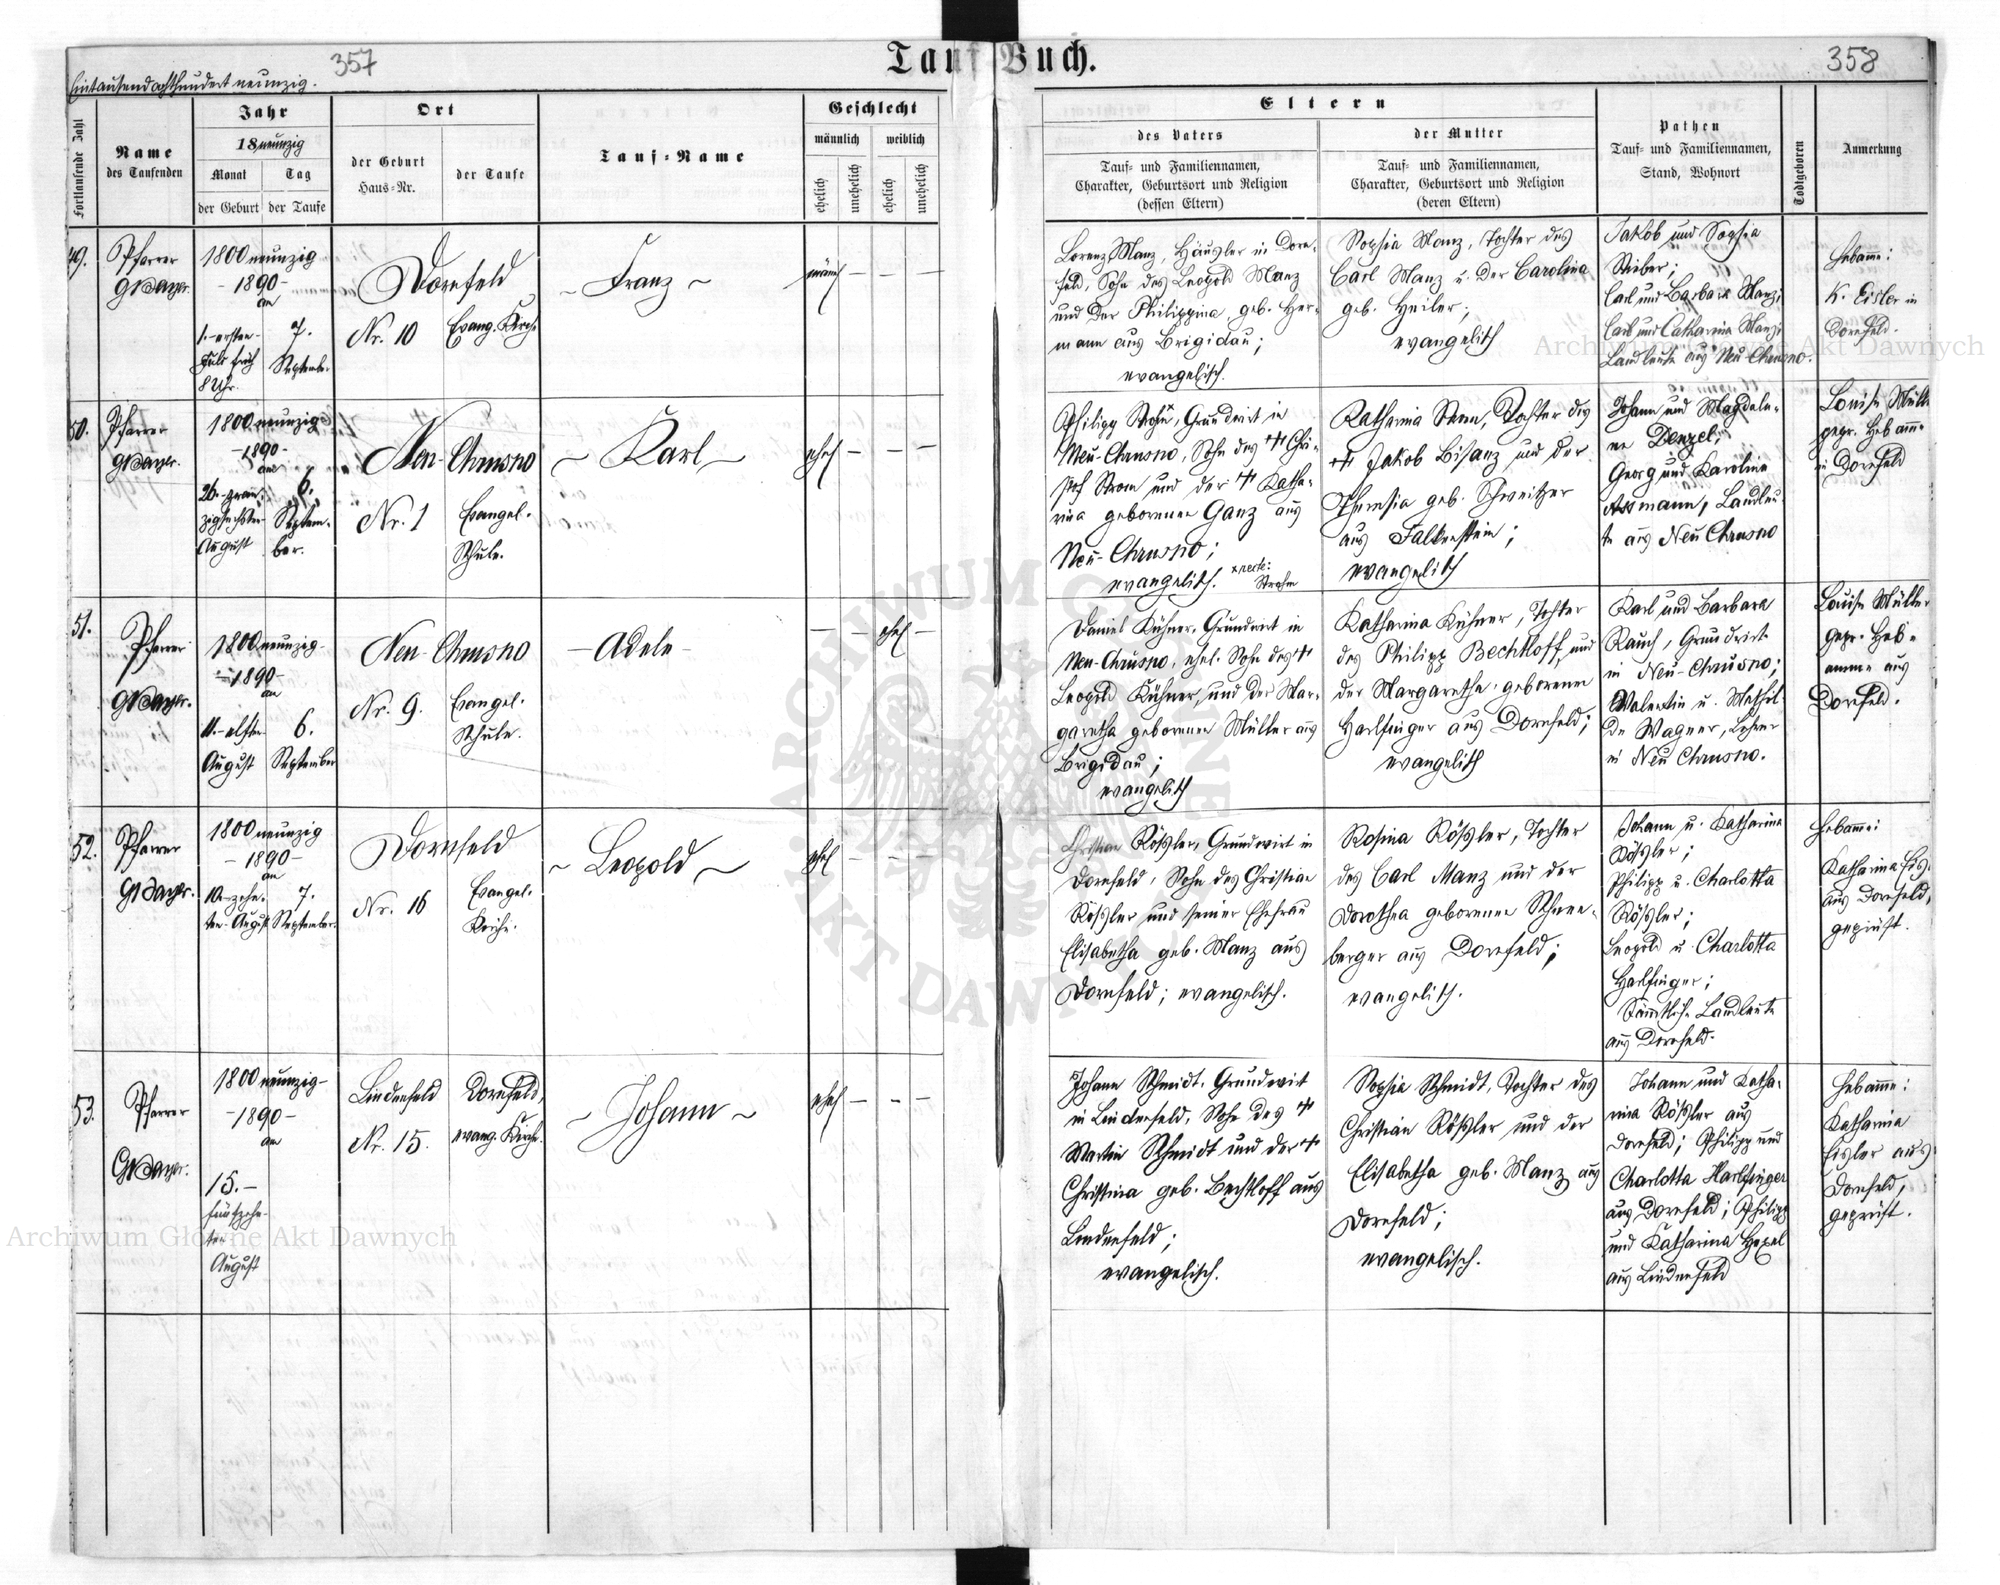 357
Tauf Buch.
358
Eintausendachthundert neunzig.
Fortlaufende Zahl
Name
des Taufenden
Jahr
18 neunzig
Monat
Tag
der Geburt
der Taufe
Ort
der Geburt
Haus-Nr.
der Taufe
Tauf-Name
Geschlecht
männlich
weiblich
ehelich
unehelich
ehelich
unehelich
Eltern
des Vaters
Tauf- und Familiennamen,
Charakter, Geburtsort und Religion
(dessen Eltern)
der Mutter
Tauf- und Familiennamen,
Charakter, Geburtsort und Religion
(deren Eltern)
Pathen
Tauf- und Familiennamen,
Stand, Wohnort
Todtgeboren
Anmerkung
49.
Pfarrer
1800 neunzig
- 1890 -
am
1. - ersten -
früh
8 Uhr.
7.
Septemb.
Dornfeld
Nr. 10
Evang. Kirche
~ Franz ~
männl
— — —
Lorenz Manz, Häusler in Dorn-
feld, Sohn des Leopold Manz
und der Philippina, geb. Her-
mann aus Brigidau;
evangelisch.
Sophia Manz, Tochter des
Carl Manz u. der Carolina
geb. Heiler;
evangelisch
Jakob und Sophia
Carl und Barbara Manz;
Carl und Catharina Manz;
Landleute aus Neu Chrusno.
Hebamme:
K. Eisler in
Dornfeld.
50.
Pfarrer
1800 neunzig
- 1890 -
am
26. - zwan-
zigsechsten
August
6.
Septem-
ber.
Neu-Chrusno
Nr. 1
Evangel.
Schule.
~ Karl ~
ehel
— — —
Philipp Strohm, Grundwirt in
Neu-Chrusno, Sohn des + Chri-
stof Strom und der + Katha-
rina geborenen Ganz aus
Neu-Chrusno;
evangelisch. x recte:
Strohm
Katharina Strom, Tochter des
+ Jakob Bisanz und der
Theresia geb. Schweitzer
aus Falkenstein;
evangelisch
Johann und Magdale-
na Denzel;
Georg und Karolina
Assmann, Landleu-
te aus Neu Chrusno
Louise Müller
gepr. Hebamme
in Dornfeld
51.
Pfarrer
1800 neunzig -
- 1890 -
am
11. - elften
August
6.
September
Neu-Chrusno
Nr. 9.
Evangel.
Schule.
- Adele -
— — ehel —
Daniel Kühner, Grundwirt in
Neu-Chrusno, ehel. Sohn des +
Leopold Kühner, und der Mar-
garetha geborenen Müller aus
Brigidau;
evangelisch
Katharina Kühner, Tochter
des Philipp Bechtloff, und
der Margaretha geborenen
Harlfinger aus Dornfeld;
evangelisch
Karl und Barbara
Rauch, Grundwirt
in Neu-Chrusno;
Valentin u. Mathil-
de Wagner, Lehrer
in Neu Chrusno.
Louise Müller
gepr. Heb-
amme aus
Dornfeld.
52.
Pfarrer
1800 neunzig
- 1890 -
am
10. - zehn-
ten - August
7.
September.
Dornfeld
Nr. 16
Evangel.
Kirche.
~ Leopold ~
ehel
— — —
Christian Rößler, Grundwirt in
Dornfeld, Sohn des Christian
Rößler und seiner Ehefrau
Elisabetha geb. Manz aus
Dornfeld; evangelisch.
Rosina Rößler, Tochter
des Carl Manz und der
Dorothea geborenen Schnee-
berger aus Dornfeld;
evangelisch.
Johann u. Katharina
Rößler;
Philipp u. Charlotta
Rößler;
Leopold u. Charlotta
Harlfinger;
Sämmtliche Landleute
aus Dornfeld.
Hebamme:
Katharina Eis.
aus Dornfeld,
geprüft.
53.
Pfarrer
1800 neunzig -
- 1890 -
am
15. -
fünfzehn-
ten
August
Lindenfeld
Nr. 15.
Dornfeld,
evang. Kirche.
~ Johann ~
ehel
— - —
Johann Schmidt, Grundwirt
in Lindenfeld, Sohn des +
Martin Schmidt und der +
Christina geb. Bechtloff aus
Lindenfeld;
evangelisch.
Sophia Schmidt, Tochter des
Christian Rößler und der
Elisabetha geb. Manz aus
Dornfeld;
evangelisch.
Johann und Katha-
rina Rößler aus
Dornfeld; Philipp und
Charlotta Harlfinger
aus Dornfeld; Philipp
und Katharina Hexel
aus Lindenfeld
Hebamme:
Katharina
Eisler aus
Dornfeld,
geprüft.
Archiwum Główne Akt Dawnych
Archiwum Główne Akt Dawnych
ARCHIWUM GŁÓWNE AKT DAWNYCH